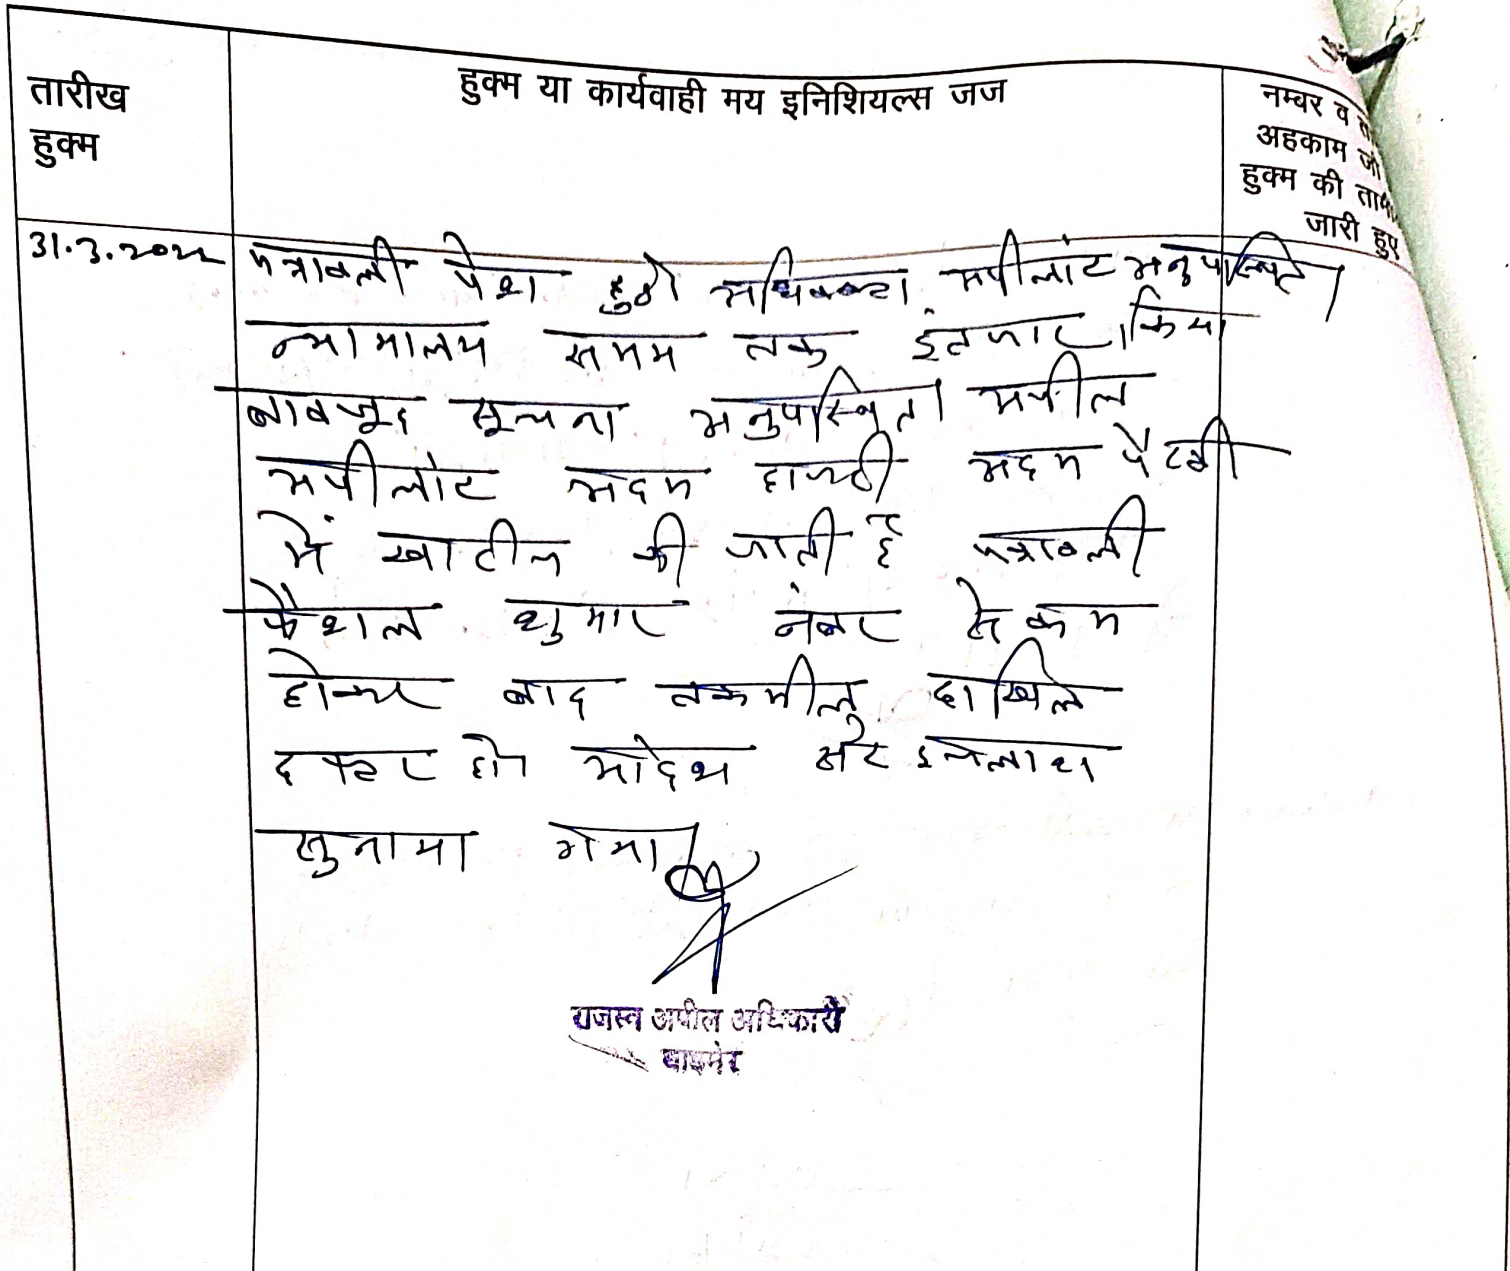 तारीख
हुक्म
हुक्म या कार्यवाही मय इनिशियल्स जज
नम्बर व
अहकाम जो
हुक्म की
जारी हुए
31.3.2022 पत्रावली पेश हुई। अधिवक्ता अपीलांट अनुपस्थित।
न्यायालय समय तक इंतजार किया
बावजूद सूचना अनुपस्थित। अपील
अपीलांट अदम हाजरी अदम पैरवी
में खारीज की जाती है पत्रावली
फैशल शुमार नंबर से कम
होकर बाद तकमील दाखिल
दफ्तर हो। आदेश सरे इजलाश
सुनाया गया।
राजस्व अपील अधिकारी
बाड़मेर